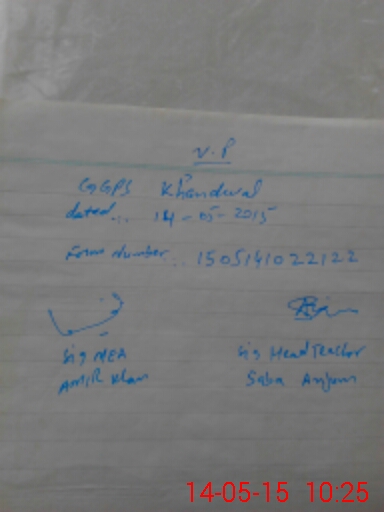 V.P
GGPS Khandwal
dated... 14-05-2015
Form Number... 1505141022122
Sig MEA Sig HeadTeacher
Amir Khan Saba Anjum
14-05-15 10:25